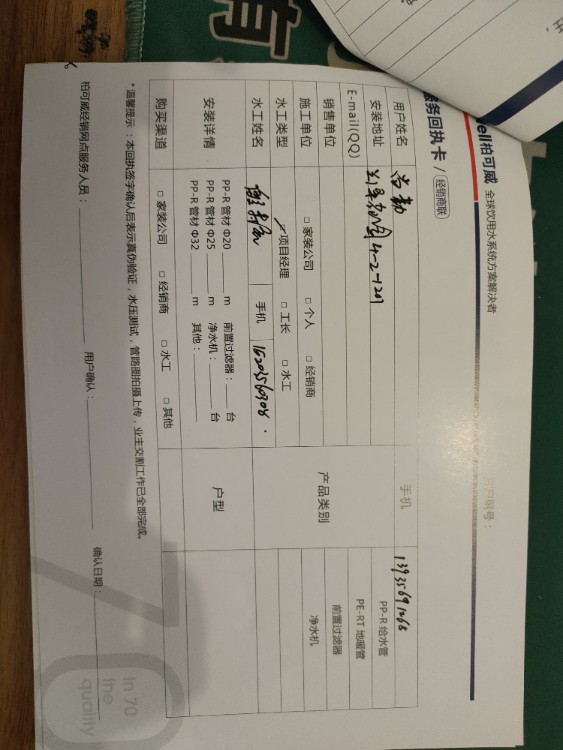 ell柏可威 全球饮用水系统方案解决者
客户编号：
服务回执卡 / 经销商联
用户姓名
手机
安装地址 4-2-1201
E-mail(QQ)
产品类别
PP-R 给水管
PE-RT 地暖管
前置过滤器
净水机
销售单位
施工单位 □ 家装公司 □ 个人 □ 经销商
水工类型 项目经理 □ 工长 □ 水工
水工姓名 手机
户型
安装详情
PP-R 管材 Φ20 ____ m 前置过滤器：____ 台
PP-R 管材 Φ25 ____ m 净水机：____ 台
PP-R 管材 Φ32 ____ m 其他：____
购买渠道 □ 家装公司 □ 经销商 □ 水工 □ 其他
* 温馨提示：本回执签字确认后表示真伪验证，水压测试，管路图拍摄上传，业主交割工作已全部完成。
柏可威经销网点服务人员：____ 用户确认：____ 确认日期：____
70
In 70
the
quality
有